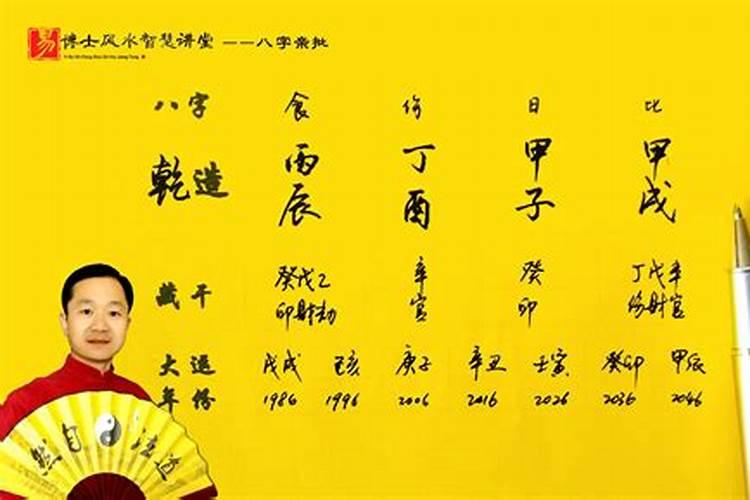 易 博士风水智慧讲堂 ——八字亲批
八字 食 伤 日 比
乾造 丙 丁 甲 甲
辰 酉 子 戌
藏干 癸戊乙 辛 癸 丁戊辛
印财劫 官 印 伤财官
大运 戊戌 己亥 庚子 辛丑 壬寅 癸卯 甲辰
年份 1986 1996 2006 2016 2026 2036 2046
道法自然